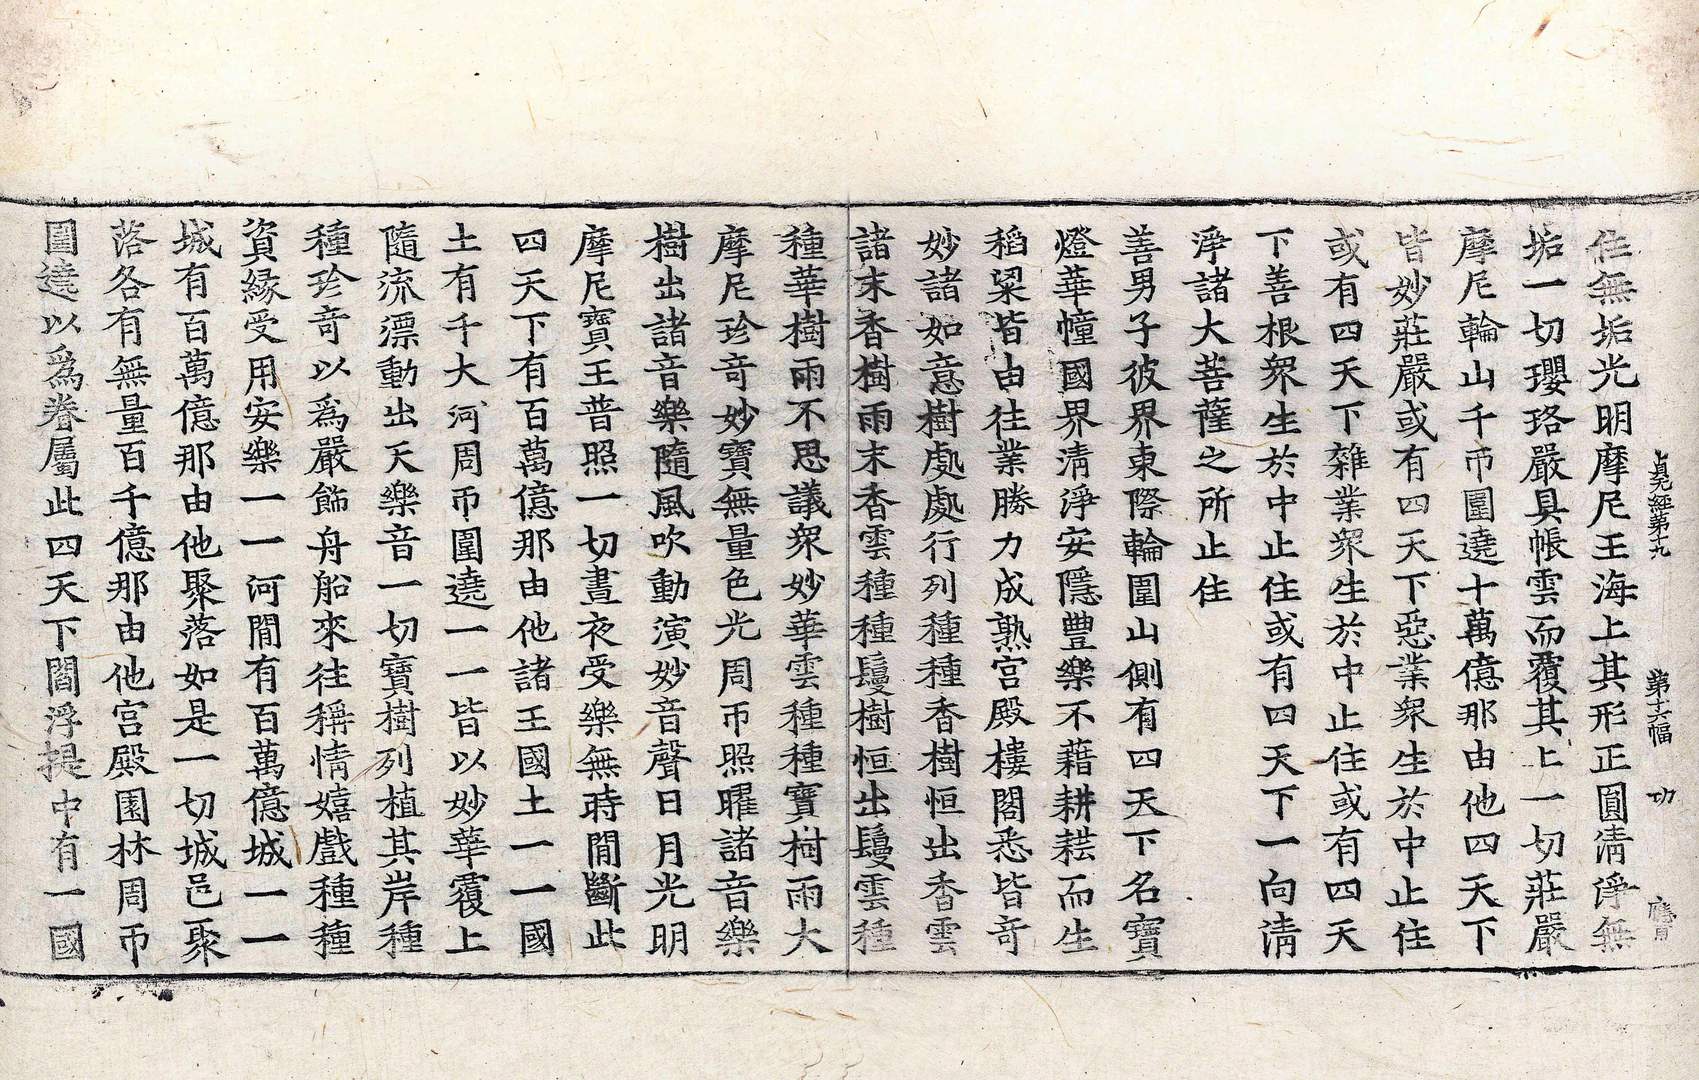 貞元經第十九 第十六幅 功
住無垢光明摩尼王海上其形正圓清淨無
垢一切瓔珞嚴具帳雲而覆其上一切莊嚴
摩尼輪山千帀圍遶十萬億那由他四天下
皆妙莊嚴或有四天下惡業衆生於中止住
或有四天下雜業衆生於中止住或有四天
下善根衆生於中止住或有四天下一向清
淨諸大菩薩之所止住
善男子彼界東際輪圍山側有四天下名寶
燈華幢國界清淨安隱豐樂不藉耕耘而生
稻粱皆由往業勝力成熟宮殿樓閣悉皆奇
妙諸如意樹處處行列種種香樹恒出香雲
諸末香樹雨末香雲種種鬘樹恒出鬘雲種
種華樹雨不思議衆妙華雲種種寶樹雨大
摩尼珍奇妙寶無量色光周帀照曜諸音樂
樹出諸音樂隨風吹動演妙音聲日月光明
摩尼寶王普照一切晝夜受樂無時閒斷此
四天下有百萬億那由他諸王國土一一國
土有千大河周帀圍遶一一皆以妙華覆上
隨流漂動出天樂音一切寶樹列植其岸種
種珍奇以爲嚴飾舟船來往稱情嬉戲種種
資緣受用安樂一一河閒有百萬億城一一
城有百萬億那由他聚落如是一切城邑聚
落各有無量百千億那由他宮殿園林周帀
圍遶以爲眷屬此四天下閻浮提中有一國